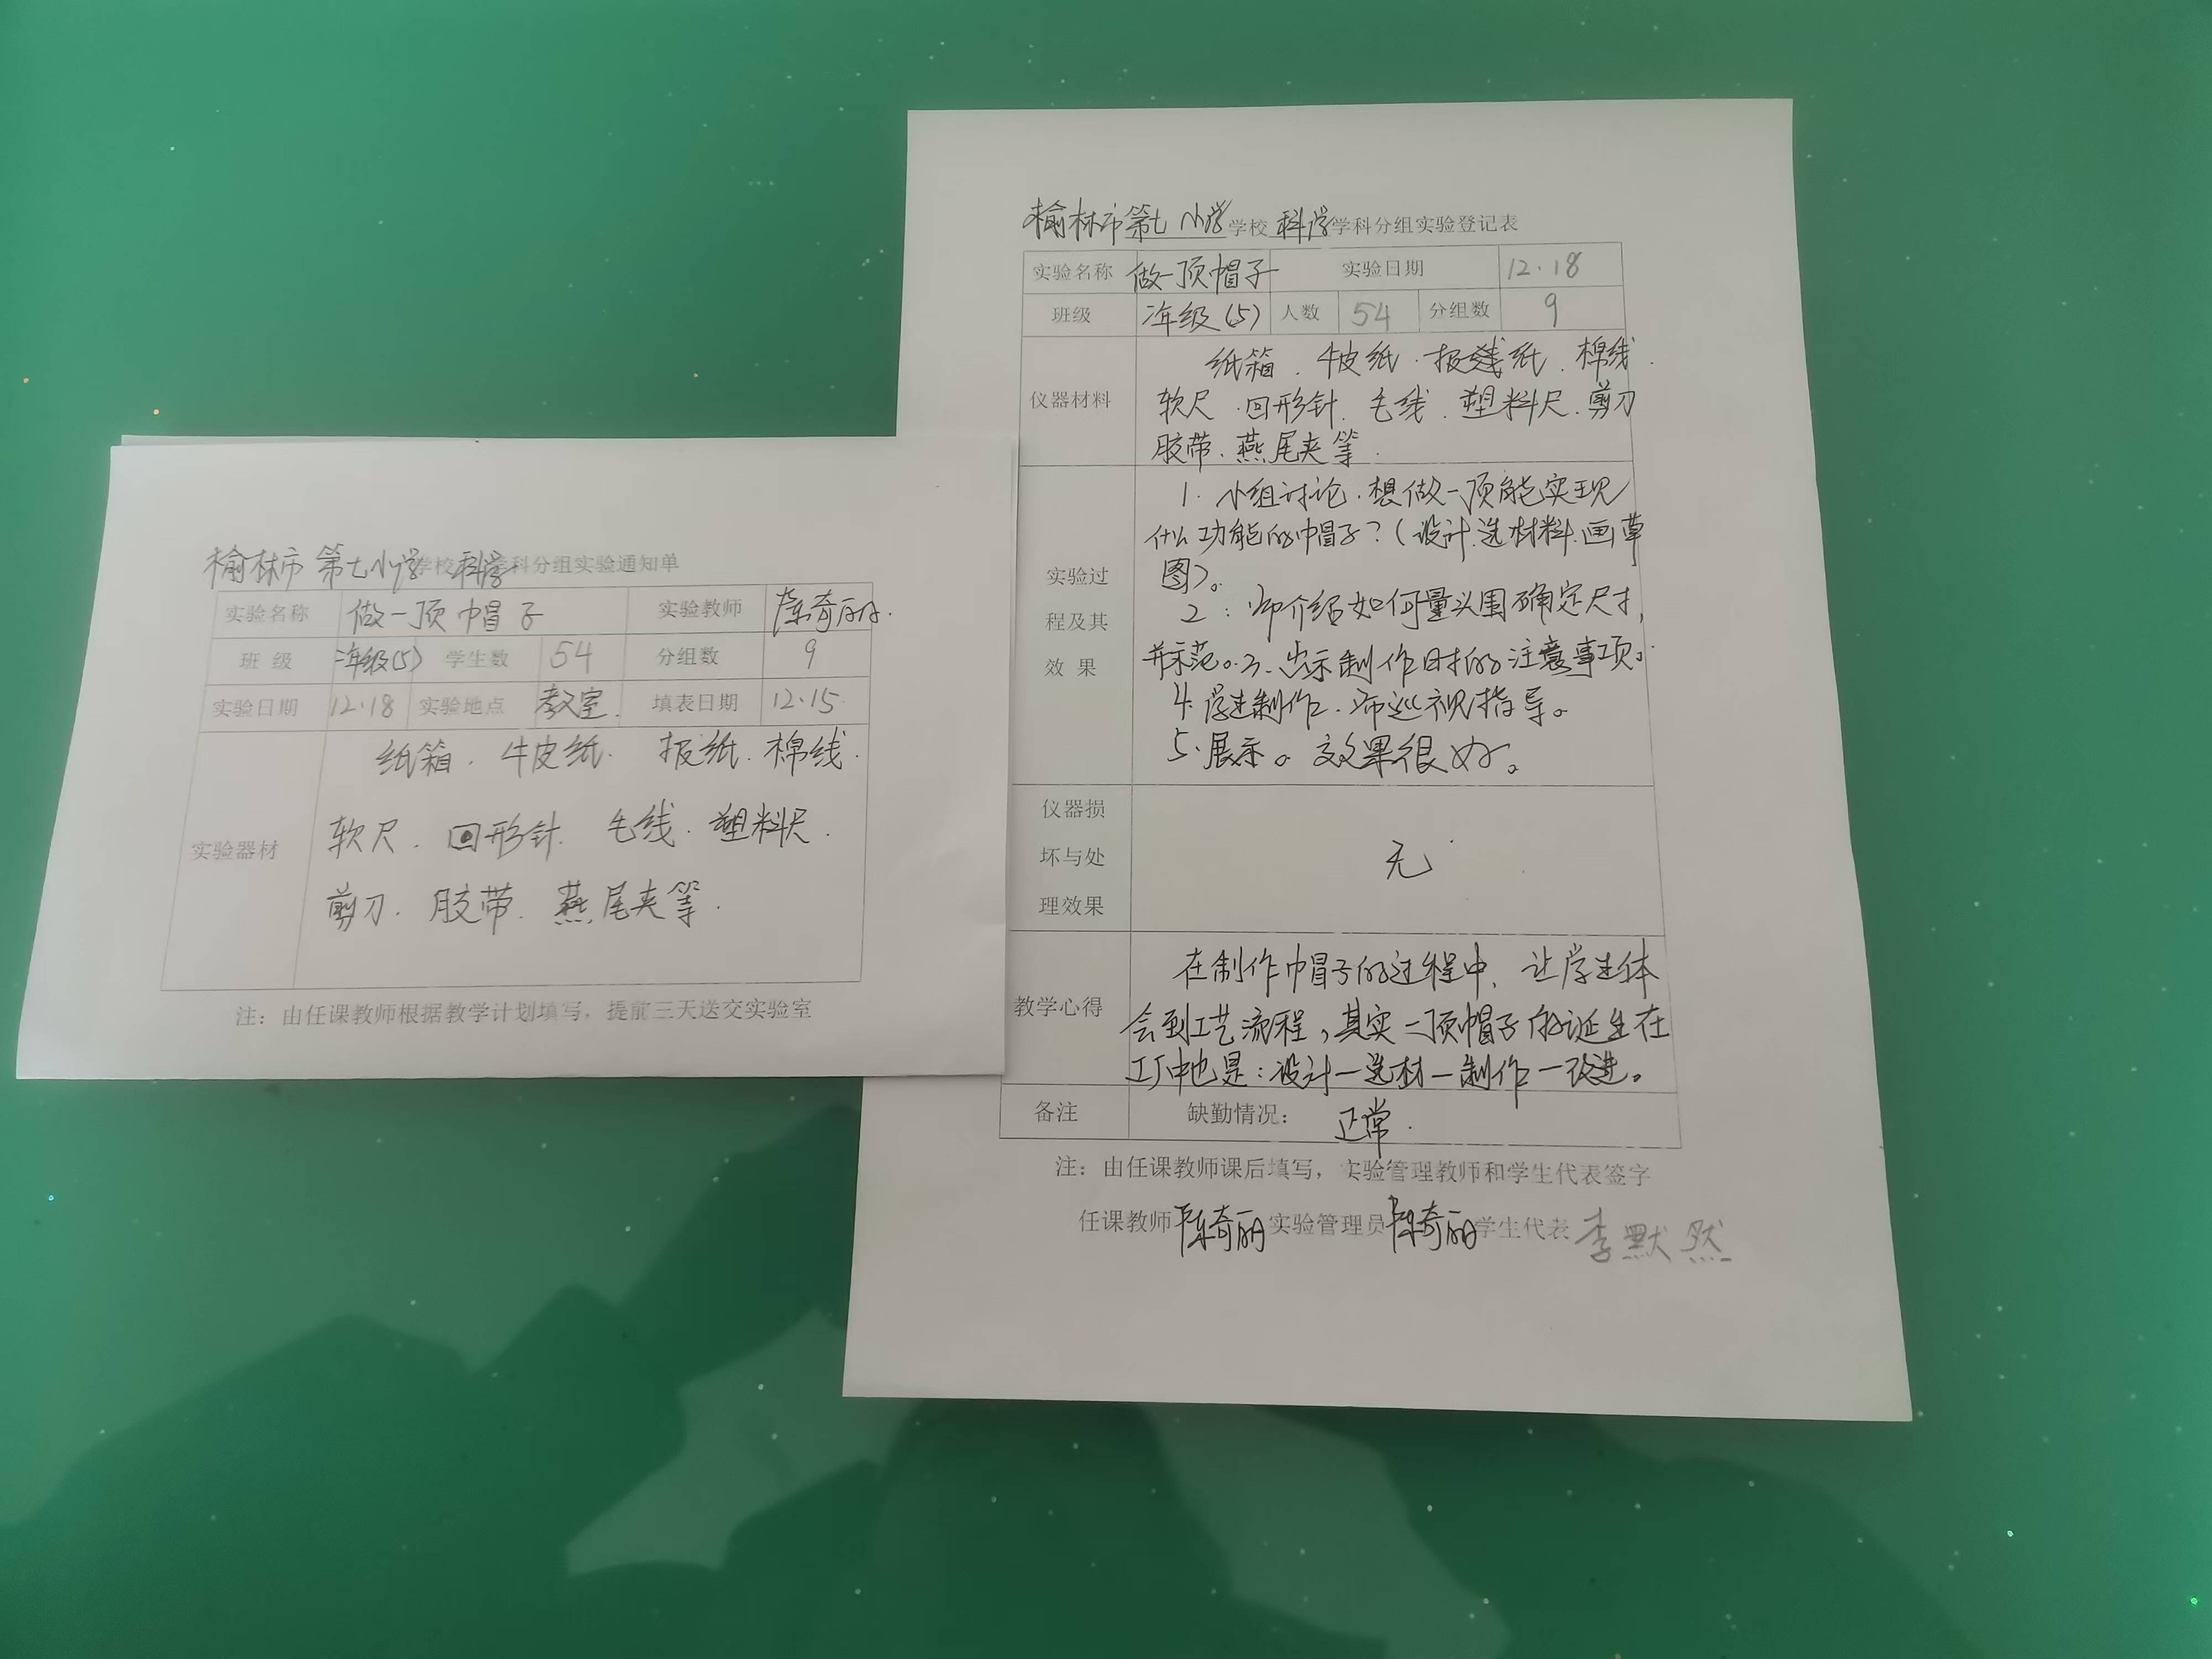 榆林市第七小学学校科学学科分组实验通知单
实验名称 做一顶帽子 实验教师 陈奇丽
班级 二年级(5) 学生数 54 分组数 9
实验日期 12.18 实验地点 教室 填表日期 12.15
实验器材
纸箱.牛皮纸.报纸.棉线.
软尺.回形针.毛线.塑料尺.
剪刀.胶带.燕尾夹等.
注：由任课教师根据教学计划填写，提前三天送交实验室
榆林市第七小学学校科学学科分组实验登记表
实验名称 做一顶帽子 实验日期 12.18
班级 二年级(5) 人数 54 分组数 9
仪器材料
纸箱.牛皮纸.报纸.棉线.
软尺.回形针.毛线.塑料尺.剪刀
胶带.燕尾夹等.
实验过
程及其
效果
1.小组讨论.想做一顶能实现
什么功能的帽子?(设计.选材料.画草
图)。
2:师介绍如何量头围确定尺寸,
并示范。3.出示制作时的注意事项。
4.学生制作.师巡视指导。
5.展示。效果很好。
仪器损
坏与处
理效果
无
教学心得
在制作帽子的过程中、让学生体
会到工艺流程,其实一顶帽子的诞生在
工厂中也是:设计—选材—制作—改进。
备注 缺勤情况： 正常.
注：由任课教师课后填写，实验管理教师和学生代表签字
任课教师 陈奇丽 实验管理员 陈奇丽 学生代表 李默然